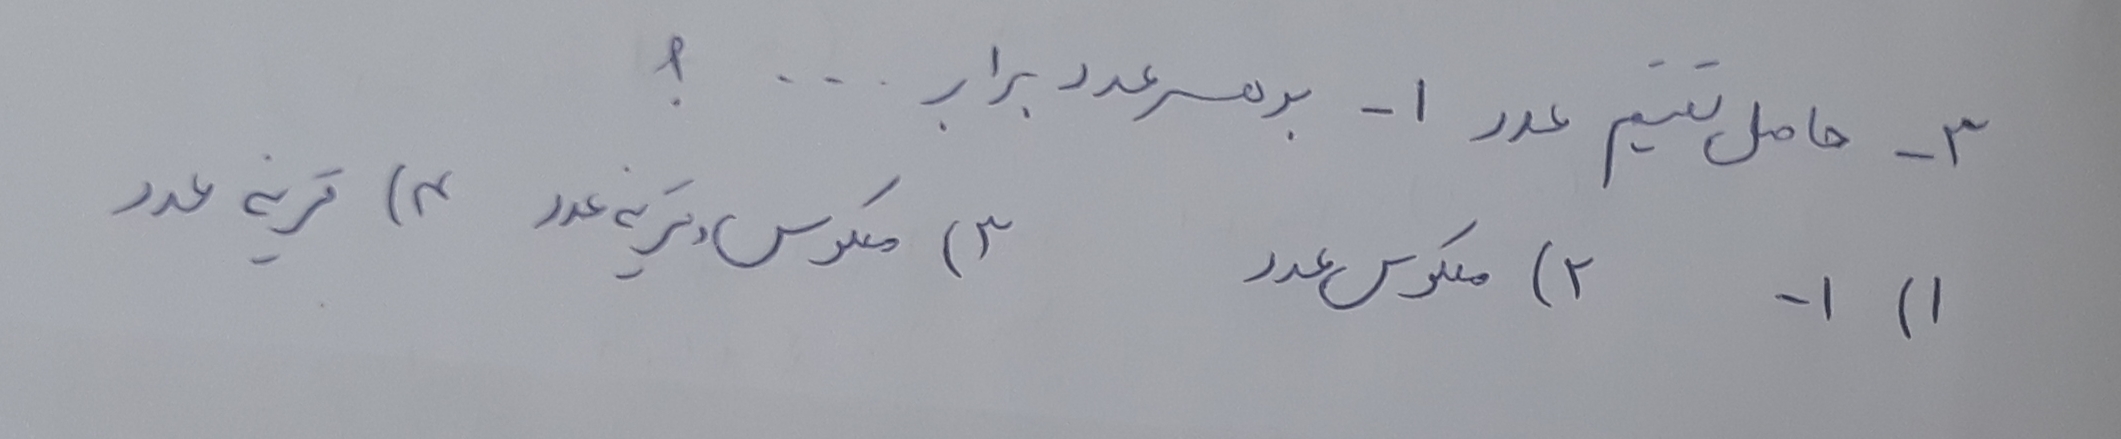 ۳- حاصل تقسیم عدد ۱- بر هر عدد برابر ... ؟
۱) ۱- ۲) معکوس عدد ۳) معکوس و قرینه عدد ۴) قرینه عدد